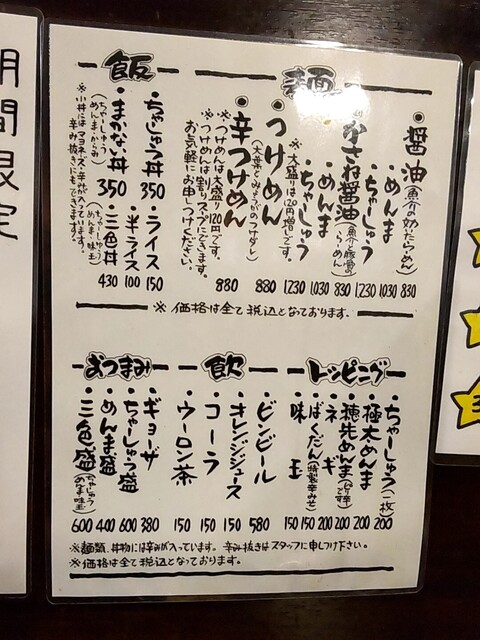 麺
・醤油(魚介の効いたらーめん) 830
・めんま 1030
・ちゃしゅう 1230
かさね醤油(魚介と豚骨のらーめん) 830
・めんま 1030
・ちゃしゅう 1230
※大盛りは120円増しです。
・つけめん 880
(大葉とみょうがのつけダレ)
・辛つけめん 880
※つけめんは大盛り120円です。
※つけめんは割りスープにできます。
お気軽にお申しつけください。
飯
・ちゃしゅう丼 350
・まかない丼 350
(ちゃーしゅう
めんま・からみ)
・ライス 150
・半ライス 100
・三色丼 430
(ちゃーしゅう
めんま・味玉)
※小丼にはマヨネーズ・辛みが入っています。
辛み抜きにもできます。
※価格は全て税込となっております。
トッピング
・ちゃーしゅう(一枚) 200
・極太めんま 200
・穂先めんま(ピリ辛です) 200
・ネギ 200
・ばくだん(特製辛みそ) 150
・味玉 150
飲
・ビンビール 580
・オレンジジュース 150
・コーラ 150
・ウーロン茶 150
おつまみ
・ギョーザ 380
・ちゃーしゅう盛 600
・めんま盛 400
・三色盛(ちゃしゅう めんま 味玉) 600
※麺類、丼物には辛みが入っています。辛み抜きはスタッフに申しつけ下さい。
※価格は全て税込となっております。
期間限定